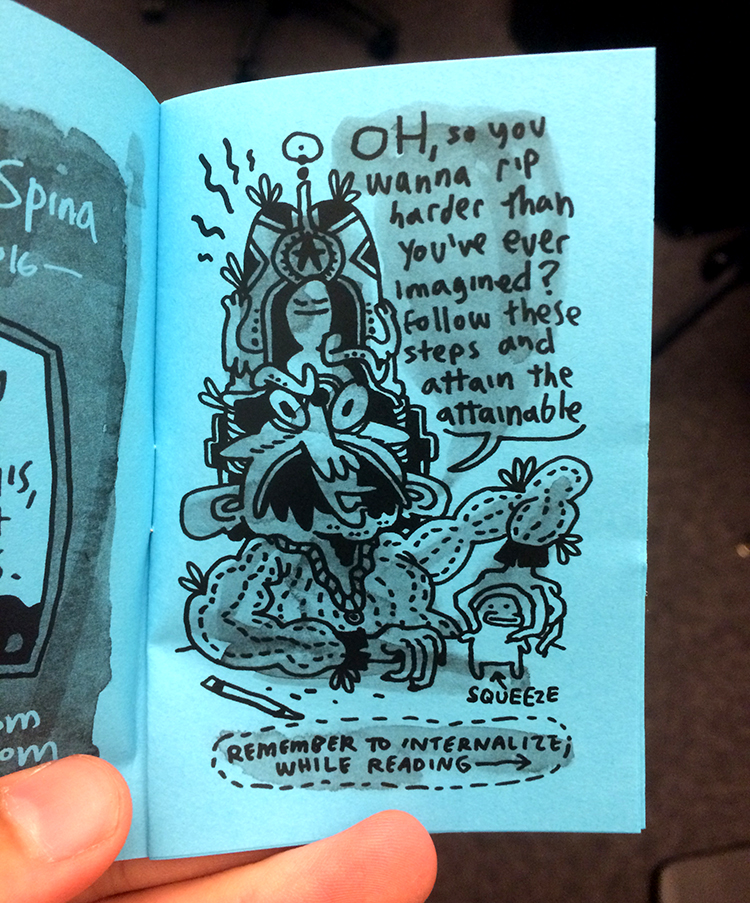 Spina
016—
IS,
om
om
OH, so you
wanna rip
harder than
you've ever
imagined?
Follow these
steps and
attain the
attainable
SQUEEZE
REMEMBER TO INTERNALIZE;
WHILE READING